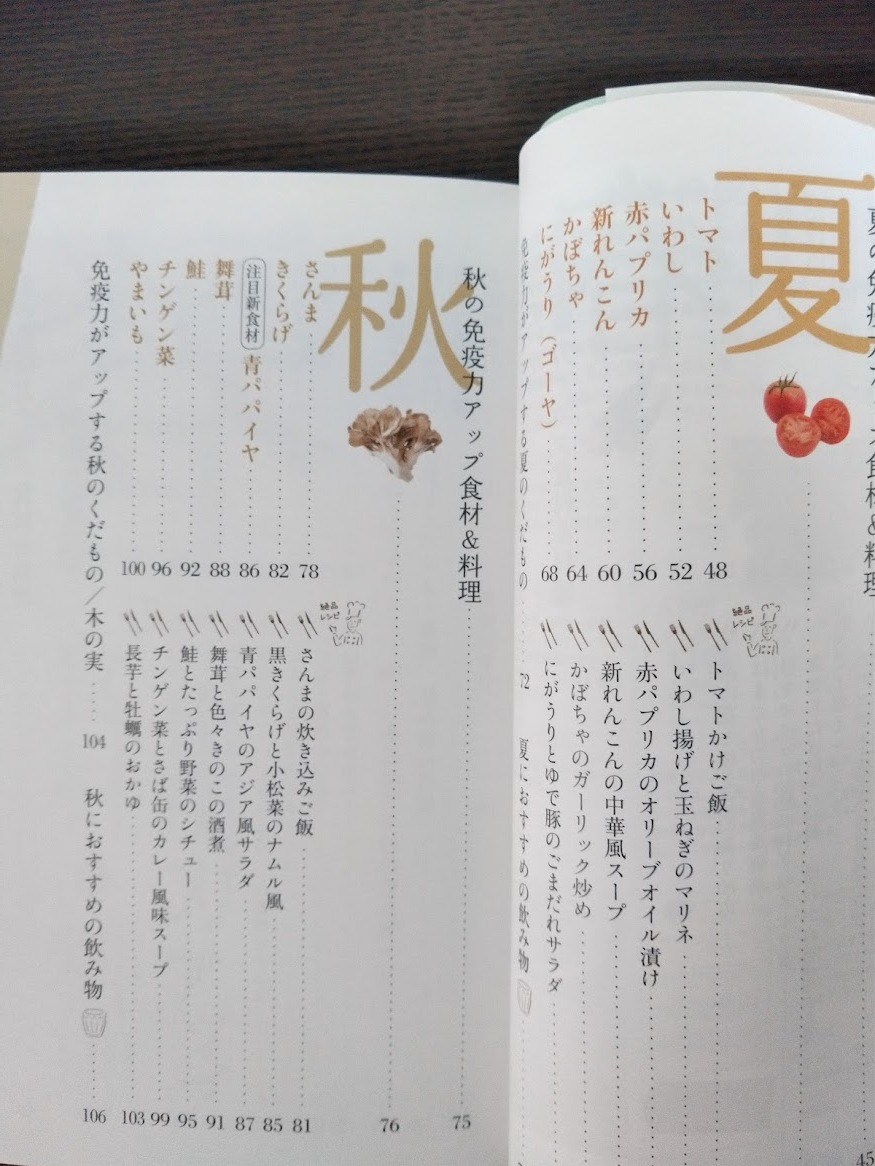 夏
トマト 48
いわし 52
赤パプリカ 56
新れんこん 60
かぼちゃ 64
にがうり（ゴーヤ） 68
絶品レシピ
トマトかけご飯
いわし揚げと玉ねぎのマリネ
赤パプリカのオリーブオイル漬け
新れんこんの中華風スープ
かぼちゃのガーリック炒め
にがうりとゆで豚のごまだれサラダ
免疫力がアップする夏のくだもの 72
夏におすすめの飲み物
45
秋の免疫力アップ食材&料理 75
秋 76
さんま 78
きくらげ 82
注目新食材 青パパイヤ 86
舞茸 88
鮭 92
チンゲン菜 96
やまいも 100
絶品レシピ
さんまの炊き込みご飯 81
黒きくらげと小松菜のナムル風 85
青パパイヤのアジア風サラダ 87
舞茸と色々きのこの酒煮 91
鮭とたっぷり野菜のシチュー 95
チンゲン菜とさば缶のカレー風味スープ 99
長芋と牡蠣のおかゆ 103
免疫力がアップする秋のくだもの／木の実 104
秋におすすめの飲み物 106